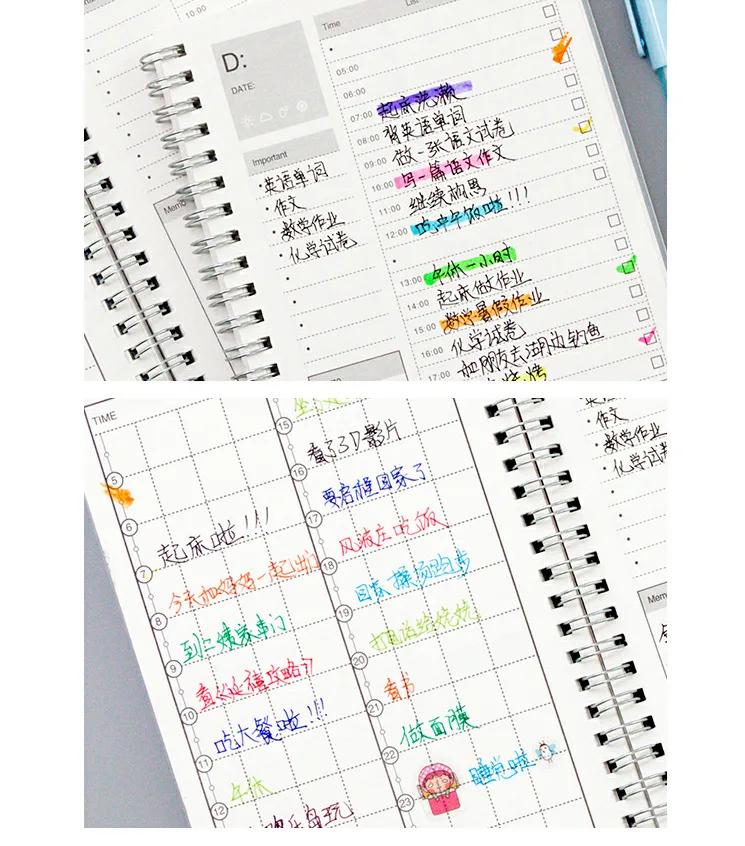 10:00
Time
List
D:
DATE:
05:00
06:00
07:00 起床洗漱
背英语单词
08:00
做一张语文试卷
09:00
10:00 写一篇语文作文
11:00 继续构思
12:00 吃中午饭啦!!!
13:00 午休一小时
14:00 起床做作业
15:00 数学暑假作业
16:00 化学试卷
17:00 和朋友去湖边钓鱼
烧烤
Important
·英语单词
·作文
·数学作业
·化学试卷
Memo
TIME
5
6
7 起床啦!!!
8 今天和妈妈一起出门
9 到二姨家串门
10
11 吃大餐啦!!!
12 午休
欢乐岛玩
15
看了3D影片
16
要启程回家了
17
风波庄吃饭
18
回家操场跑步
19
20
看书
21
做面膜
22
睡觉啦
23
·作文
·数学作业
·化学试
Memo